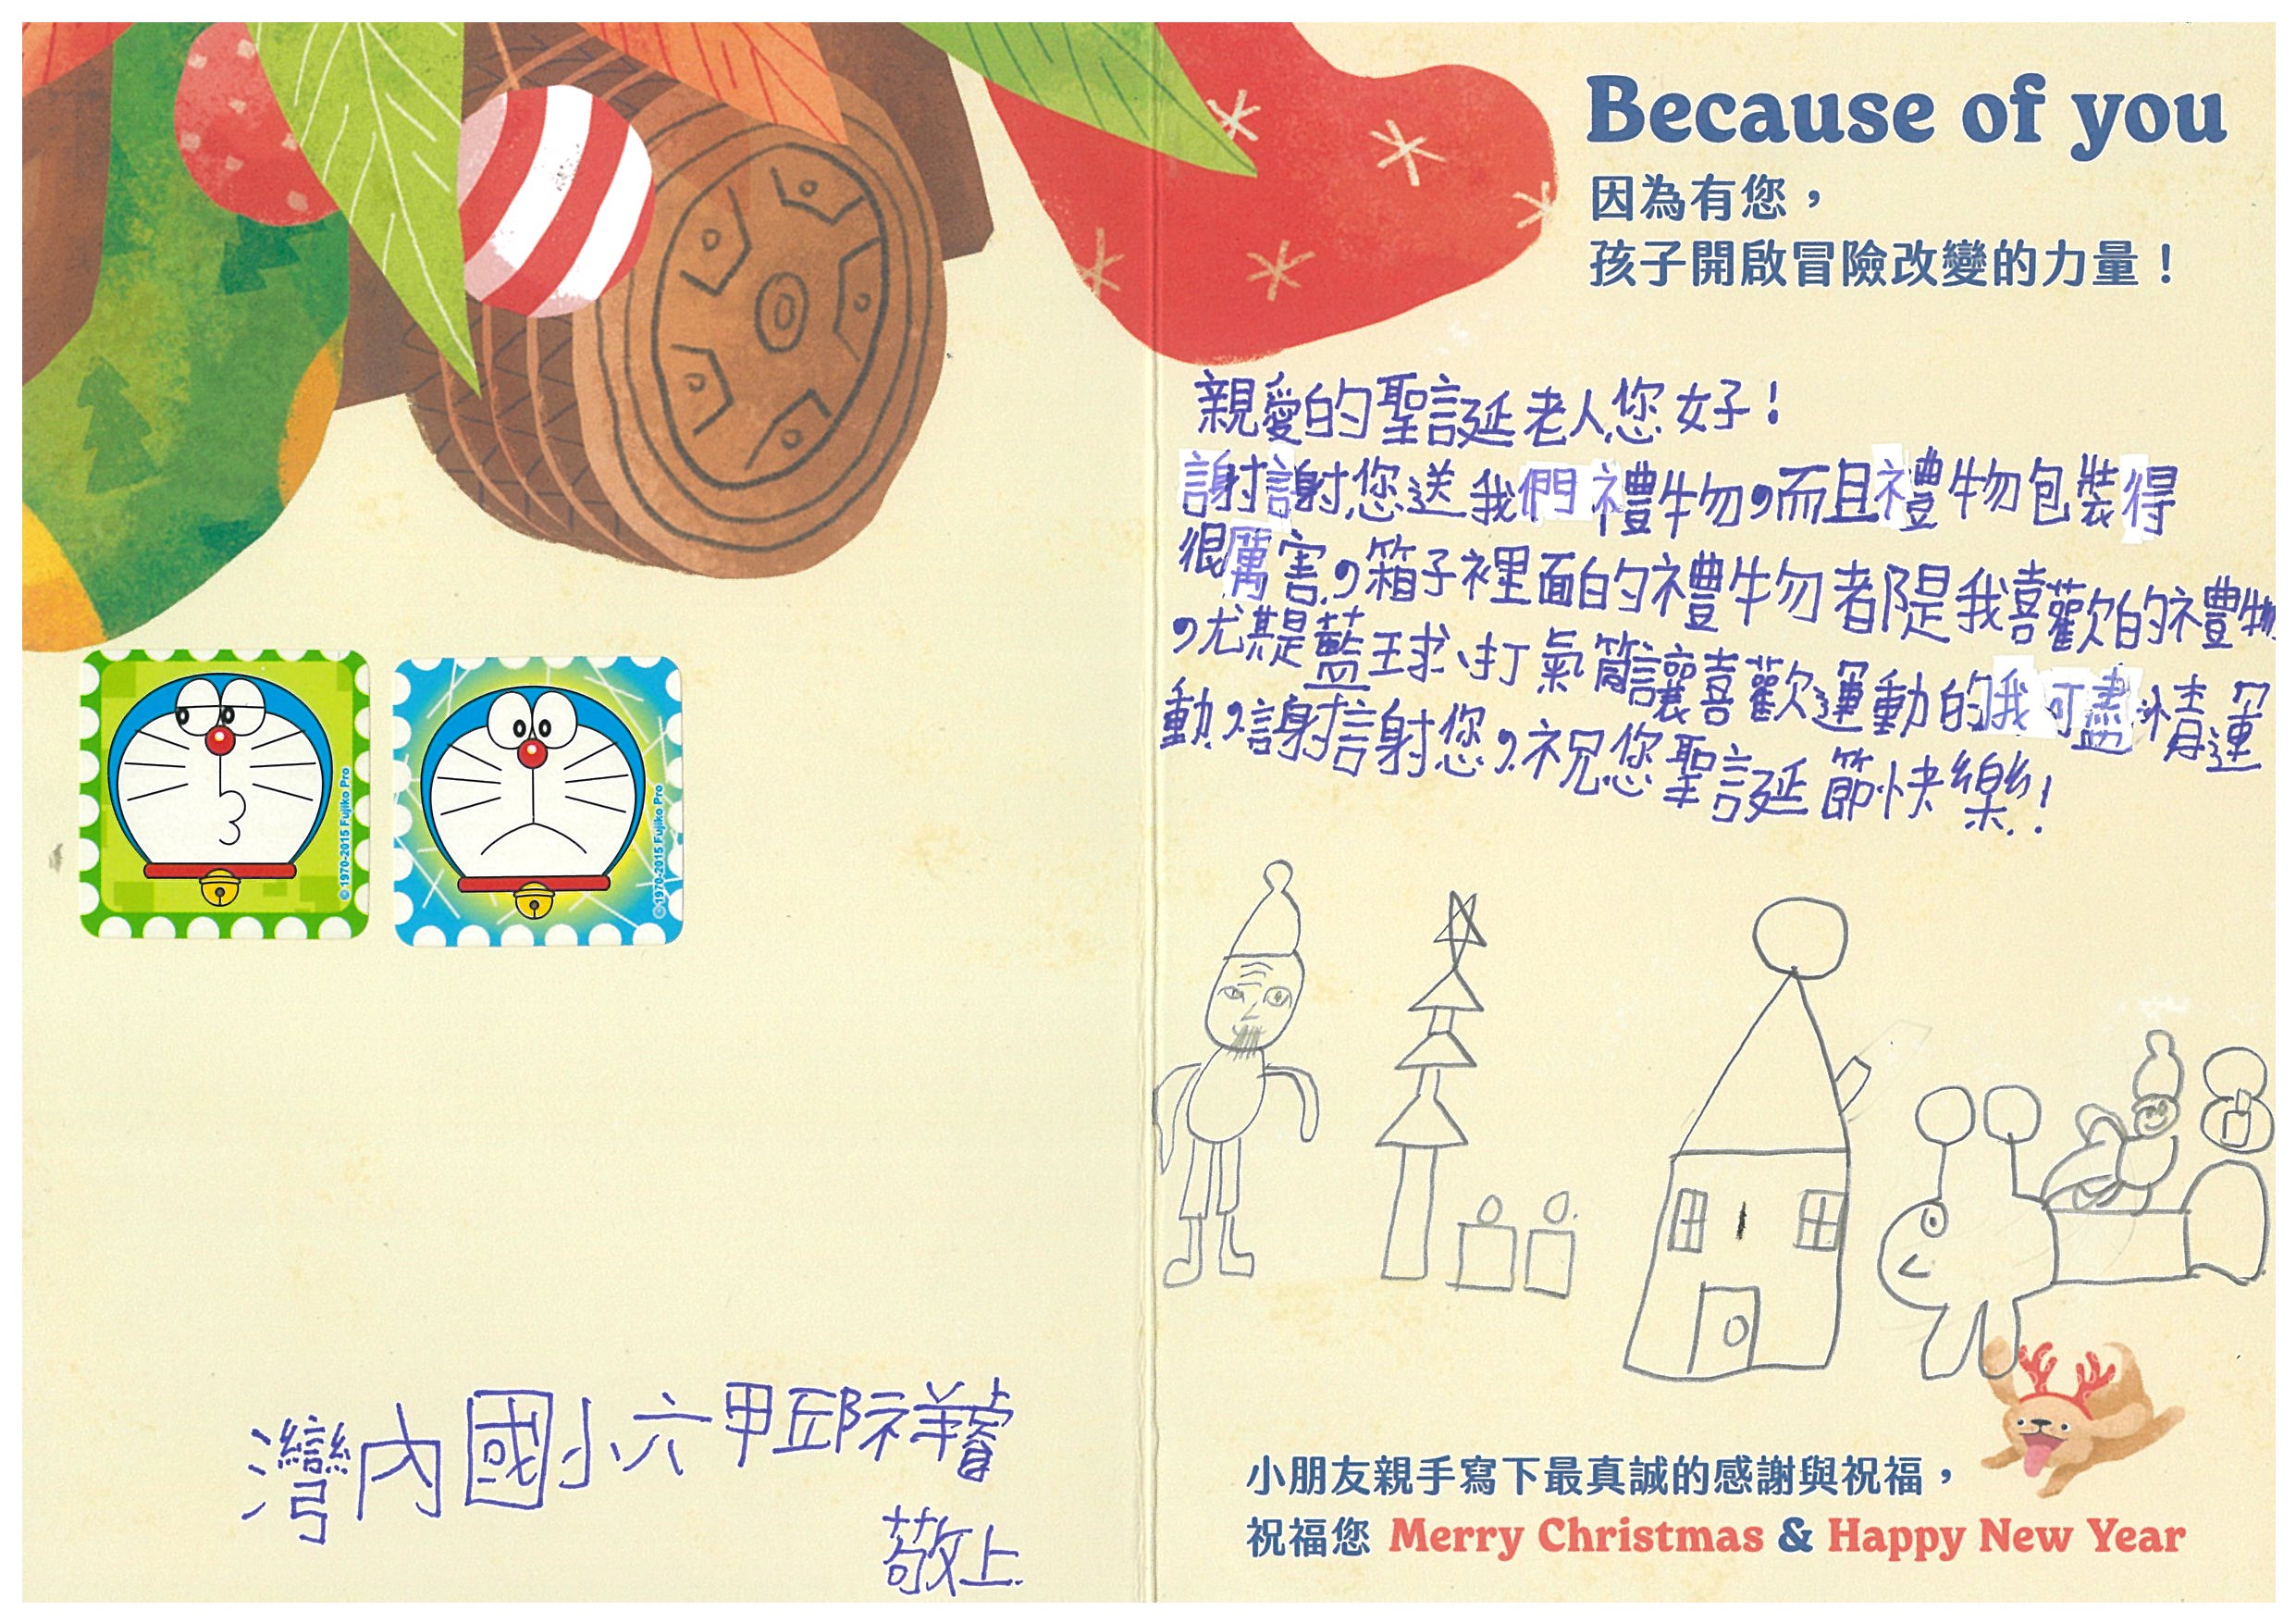 Because of you
因為有您，
孩子開啟冒險改變的力量！
親愛的聖誕老人您好！
謝謝您送我們禮物，而且禮物包裝得
很厲害，箱子裡面的禮物都是我喜歡的禮物
，尤其是藍球、打氣筒讓喜歡運動的我可盡情運
動，謝謝您，祝您聖誕節快樂！
© 1970-2015 Fujiko Pro
© 1970-2015 Fujiko Pro
灣內國小六甲邱祥睿
敬上
小朋友親手寫下最真誠的感謝與祝福，
祝福您 Merry Christmas & Happy New Year